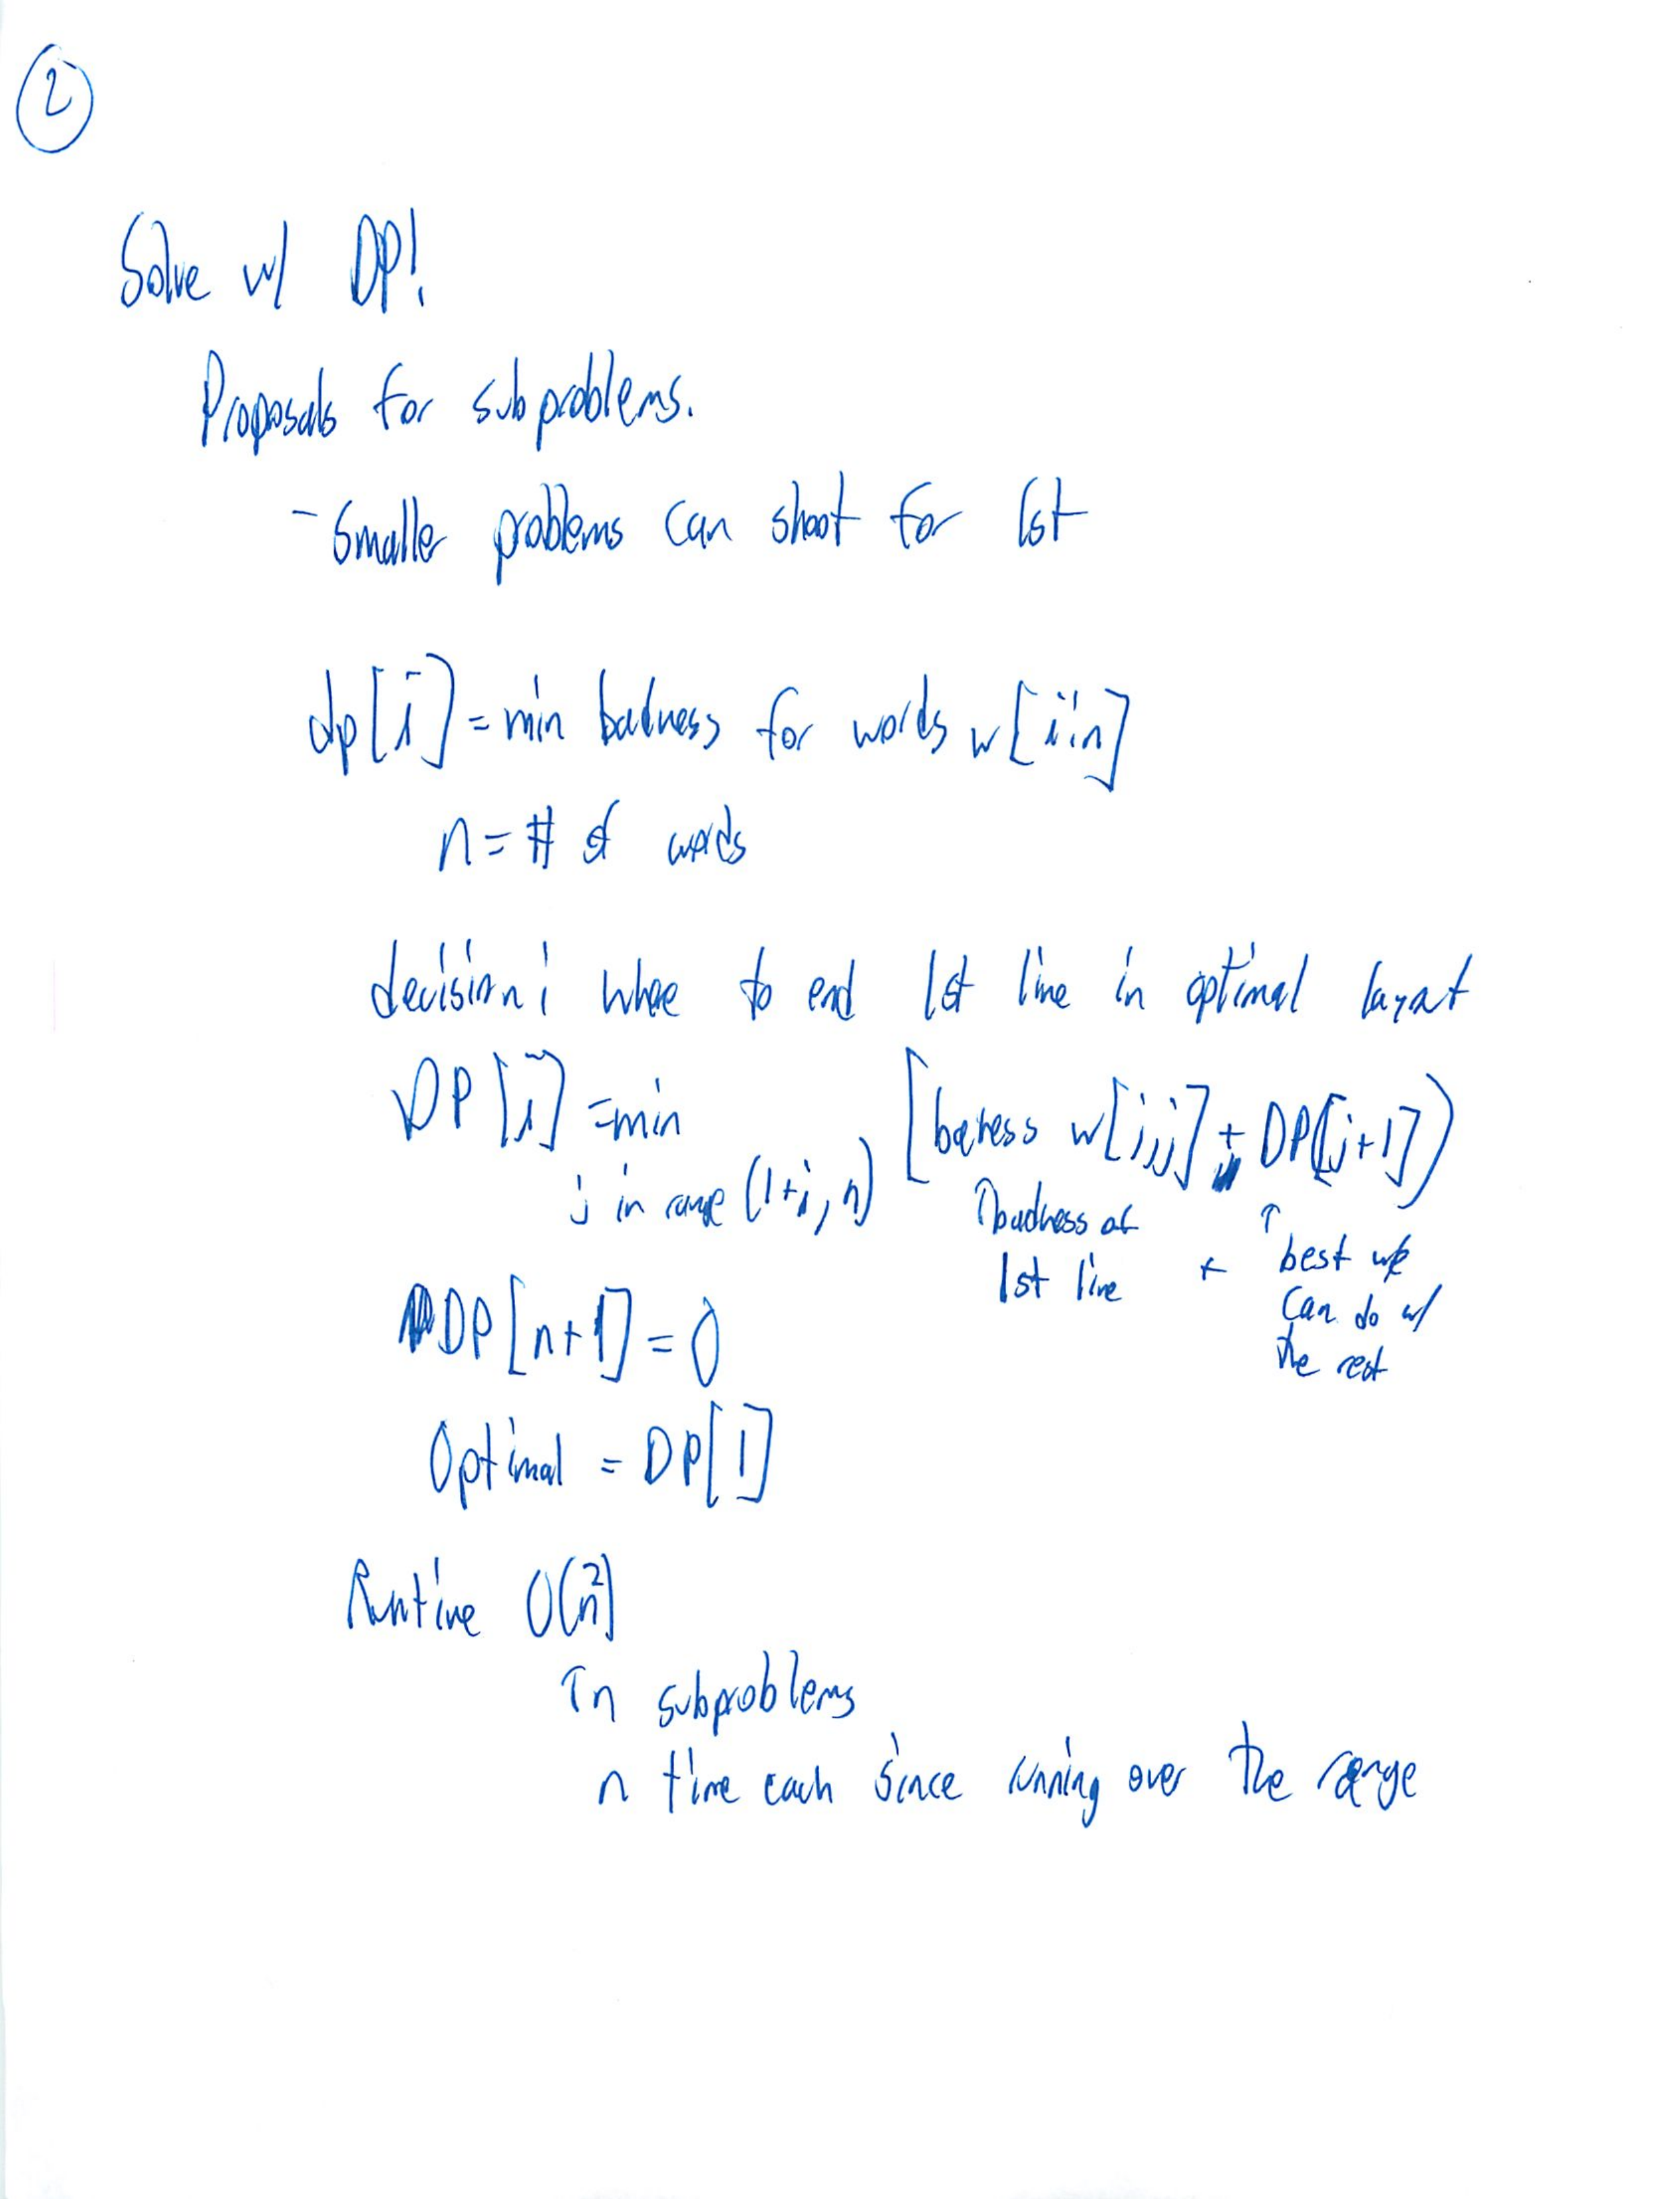 2
Solve w/ DP!
Proposals for subproblems.
- Smaller problems can shoot for 1st
dp[i] = min badness for words w[i:n]
n = # of words
decision: where to end 1st line in optimal layout
DP[i] = min [badness w[i,j] + DP[j+1])
j in range (1+i, n)
↑ badness of ↑
1st line + best we
can do w/
the rest
DP[n+1] = 0
Optimal = DP[1]
Runtime O(n²)
n subproblems
n time each since running over the range